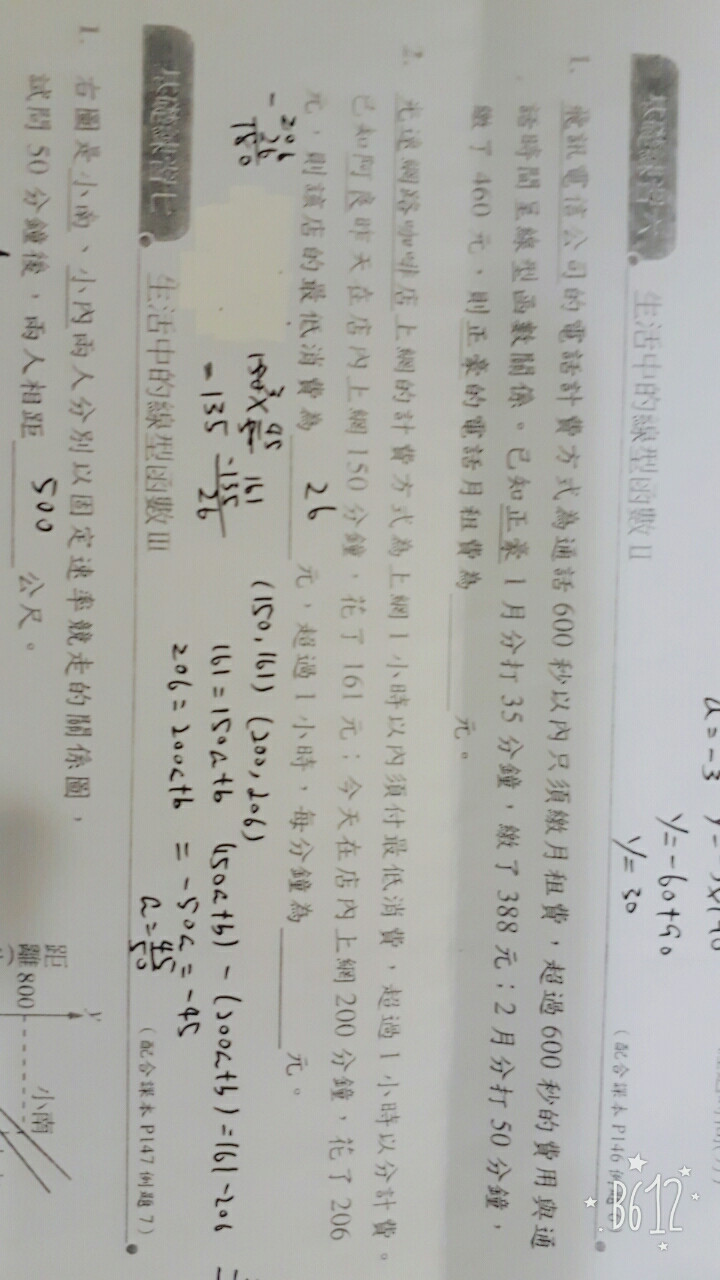 a=-3
y=-60+90
y=30
基礎練習六 生活中的線型函數II (配合課本 P146 例題
1. 飛訊電信公司的電話計費方式為通話 600 秒以內只須繳月租費，超過 600 秒的費用與通
話時間呈線型函數關係。已知正豪 1 月分打 35 分鐘，繳了 388 元；2 月分打 50 分鐘，
繳了 460 元，則正豪的電話月租費為 ＿＿＿ 元。
2. 光速網路咖啡店上網的計費方式為上網 1 小時以內須付最低消費，超過 1 小時以分計費。
已知阿良昨天在店內上網 150 分鐘，花了 161 元；今天在店內上網 200 分鐘，花了 206
元，則該店的最低消費為 26 元，超過 1 小時，每分鐘為 ＿＿＿ 元。
206
- 26
180
161
-135
26
-135
(150,161) (200,206)
161=150a+b (150a+b)-(200a+b)=161-206
206=200a+b =-50a=-45
a=45/50
基礎練習七 生活中的線型函數III (配合課本 P147 例題 7)
1. 右圖是小南、小內兩人分別以固定速率競走的關係圖，
試問 50 分鐘後，兩人相距 500 公尺。
y
距離
800
小南
B612